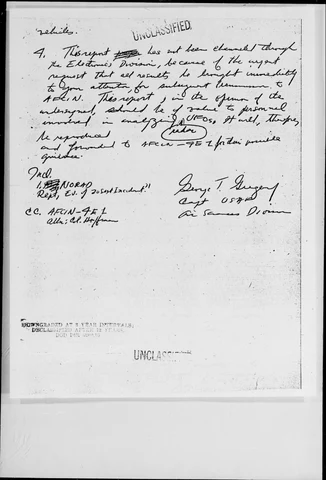 UNCLASSIFIED
vehicles.
4. This report has not been channeled through
the Electronics Division, because of the urgent
request that all results be brought immediately
to your attention, for subsequent transmission to
AFCIN. This report, in the opinion of the
undersigned, should be of value to personnel
involved in analyzing UFOs, it will, therefore,
radar
be reproduced
and forwarded to AFCIN-4E1 for their possible
guidance.
Incl
1. NORAD
Rept, Ev. of Incident"
George T. Gregory
Capt USAF
Air Sciences Division
CC. AFCIN-4E1
Attn: Col. Hoffman
DOWNGRADED AT 3 YEAR INTERVALS;
DECLASSIFIED AFTER 12 YEARS.
DOD DIR 5200.10
UNCLASSIFIED